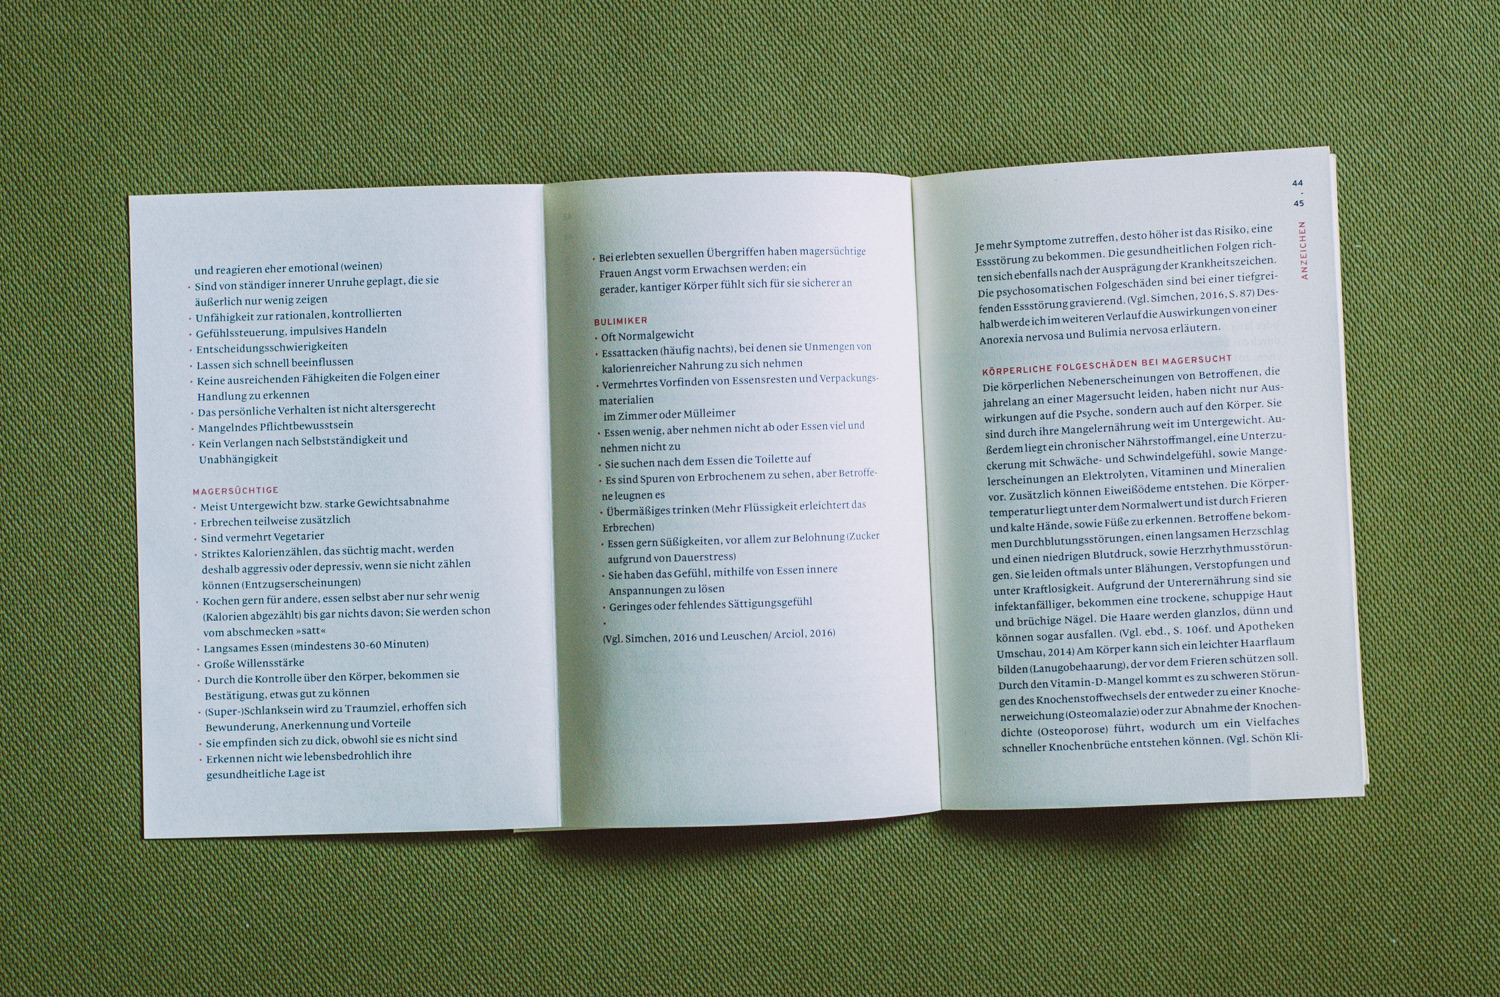 und reagieren eher emotional (weinen)
· Sind von ständiger innerer Unruhe geplagt, die sie
äußerlich nur wenig zeigen
· Unfähigkeit zur rationalen, kontrollierten
· Gefühlssteuerung, impulsives Handeln
· Entscheidungsschwierigkeiten
· Lassen sich schnell beeinflussen
· Keine ausreichenden Fähigkeiten die Folgen einer
Handlung zu erkennen
· Das persönliche Verhalten ist nicht altersgerecht
· Mangelndes Pflichtbewusstsein
· Kein Verlangen nach Selbstständigkeit und
Unabhängigkeit
MAGERSÜCHTIGE
· Meist Untergewicht bzw. starke Gewichtsabnahme
· Erbrechen teilweise zusätzlich
· Sind vermehrt Vegetarier
· Striktes Kalorienzählen, das süchtig macht, werden
deshalb aggressiv oder depressiv, wenn sie nicht zählen
können (Entzugserscheinungen)
· Kochen gern für andere, essen selbst aber nur sehr wenig
(Kalorien abgezählt) bis gar nichts davon; Sie werden schon
vom abschmecken »satt«
· Langsames Essen (mindestens 30-60 Minuten)
· Große Willensstärke
· Durch die Kontrolle über den Körper, bekommen sie
Bestätigung, etwas gut zu können
· (Super-)Schlanksein wird zu Traumziel, erhoffen sich
Bewunderung, Anerkennung und Vorteile
· Sie empfinden sich zu dick, obwohl sie es nicht sind
· Erkennen nicht wie lebensbedrohlich ihre
gesundheitliche Lage ist
· Bei erlebten sexuellen Übergriffen haben magersüchtige
Frauen Angst vorm Erwachsen werden; ein
gerader, kantiger Körper fühlt sich für sie sicherer an
BULIMIKER
· Oft Normalgewicht
· Essattacken (häufig nachts), bei denen sie Unmengen von
kalorienreicher Nahrung zu sich nehmen
· Vermehrtes Vorfinden von Essensresten und Verpackungs-
materialien
im Zimmer oder Mülleimer
· Essen wenig, aber nehmen nicht ab oder Essen viel und
nehmen nicht zu
· Sie suchen nach dem Essen die Toilette auf
· Es sind Spuren von Erbrochenem zu sehen, aber Betroffe-
ne leugnen es
· Übermäßiges trinken (Mehr Flüssigkeit erleichtert das
Erbrechen)
· Essen gern Süßigkeiten, vor allem zur Belohnung (Zucker
aufgrund von Dauerstress)
· Sie haben das Gefühl, mithilfe von Essen innere
Anspannungen zu lösen
· Geringes oder fehlendes Sättigungsgefühl
·
(Vgl. Simchen, 2016 und Leuschen/ Arciol, 2016)
44
-
45
ANZEICHEN
Je mehr Symptome zutreffen, desto höher ist das Risiko, eine
Essstörung zu bekommen. Die gesundheitlichen Folgen rich-
ten sich ebenfalls nach der Ausprägung der Krankheitszeichen.
Die psychosomatischen Folgeschäden sind bei einer tiefgrei-
fenden Essstörung gravierend. (Vgl. Simchen, 2016, S. 87) Des-
halb werde ich im weiteren Verlauf die Auswirkungen von einer
Anorexia nervosa und Bulimia nervosa erläutern.
KÖRPERLICHE FOLGESCHÄDEN BEI MAGERSUCHT
Die körperlichen Nebenerscheinungen von Betroffenen, die
jahrelang an einer Magersucht leiden, haben nicht nur Aus-
wirkungen auf die Psyche, sondern auch auf den Körper. Sie
sind durch ihre Mangelernährung weit im Untergewicht. Au-
ßerdem liegt ein chronischer Nährstoffmangel, eine Unterzu-
ckerung mit Schwäche- und Schwindelgefühl, sowie Mange-
lerscheinungen an Elektrolyten, Vitaminen und Mineralien
vor. Zusätzlich können Eiweißödeme entstehen. Die Körper-
temperatur liegt unter dem Normalwert und ist durch Frieren
und kalte Hände, sowie Füße zu erkennen. Betroffene bekom-
men Durchblutungsstörungen, einen langsamen Herzschlag
und einen niedrigen Blutdruck, sowie Herzrhythmusstörun-
gen. Sie leiden oftmals unter Blähungen, Verstopfungen und
unter Kraftlosigkeit. Aufgrund der Unterernährung sind sie
infektanfälliger, bekommen eine trockene, schuppige Haut
und brüchige Nägel. Die Haare werden glanzlos, dünn und
können sogar ausfallen. (Vgl. ebd., S. 106f. und Apotheken
Umschau, 2014) Am Körper kann sich ein leichter Haarflaum
bilden (Lanugobehaarung), der vor dem Frieren schützen soll.
Durch den Vitamin-D-Mangel kommt es zu schweren Störun-
gen des Knochenstoffwechsels der entweder zu einer Knoche-
nerweichung (Osteomalazie) oder zur Abnahme der Knochen-
dichte (Osteoporose) führt, wodurch um ein Vielfaches
schneller Knochenbrüche entstehen können. (Vgl. Schön Kli-